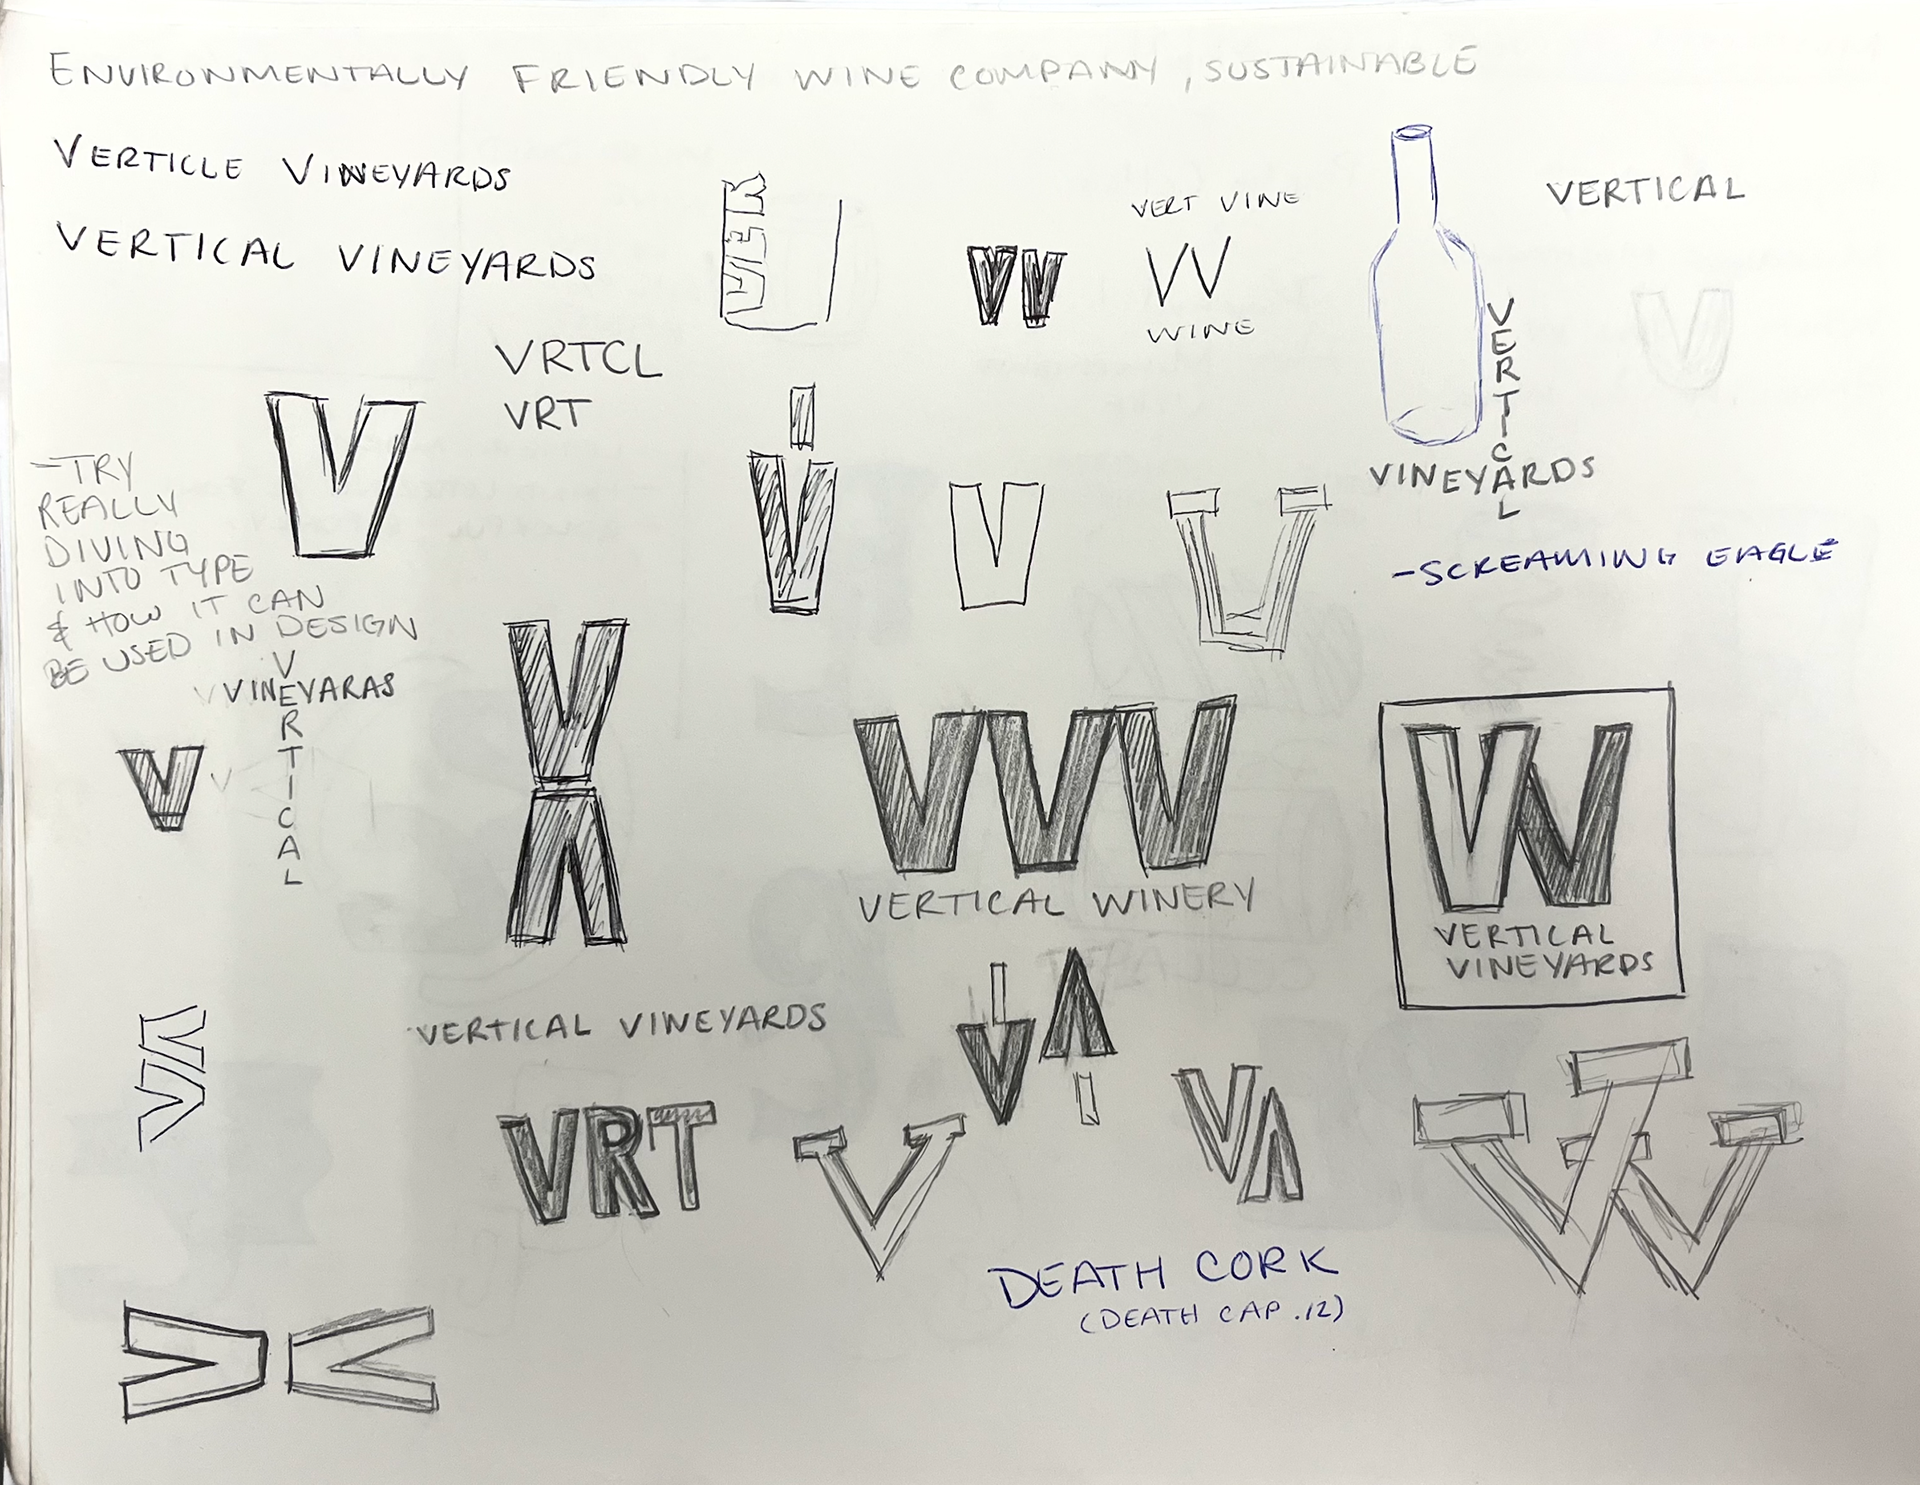 ENVIRONMENTALLY FRIENDLY WINE COMPANY, SUSTAINABLE
VERTICLE VINEYARDS
VERTICAL VINEYARDS
VER
VERT VINE
VV
VV
WINE
VERTICAL
V
VERTICAL
VINEYARDS
-SCREAMING EAGLE
VRTCL
VRT
V
-TRY
REALLY
DIVING
INTO TYPE
& HOW IT CAN
BE USED IN DESIGN
V
V
V
VINEYARAS
VERTICAL
V
V
V
V
VVV
VERTICAL WINERY
VV
VERTICAL
VINEYARDS
VERTICAL VINEYARDS
VRT
V
V
V
V
VV
VV
VV
DEATH CORK
(DEATH CAP .12)
VV